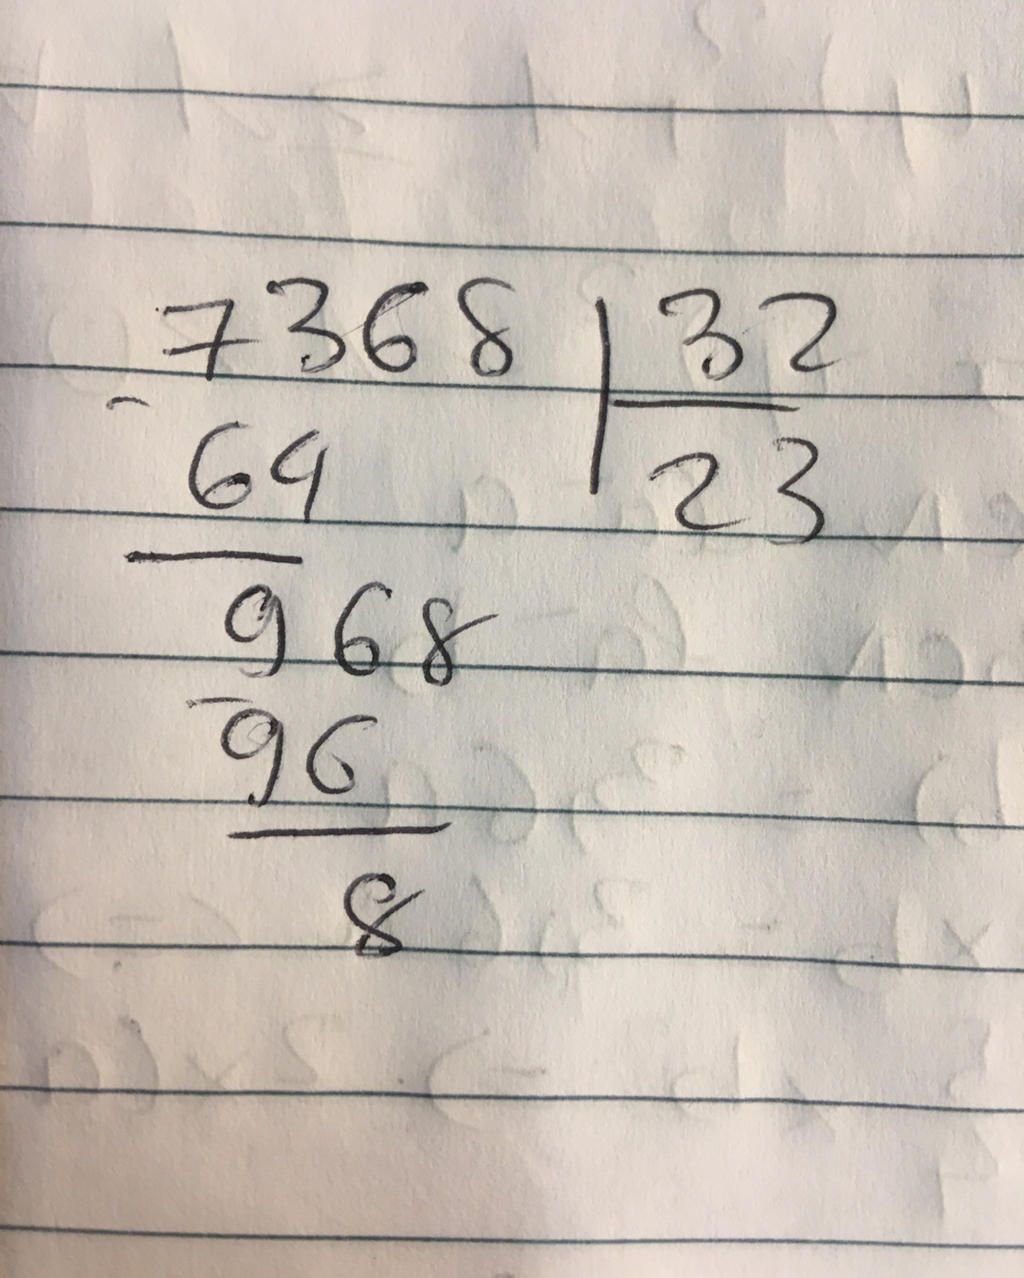 7368 | 32
- 64 23
968
- 96
8